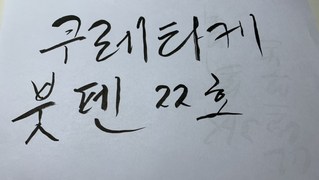 쿠레타케
붓펜 22호